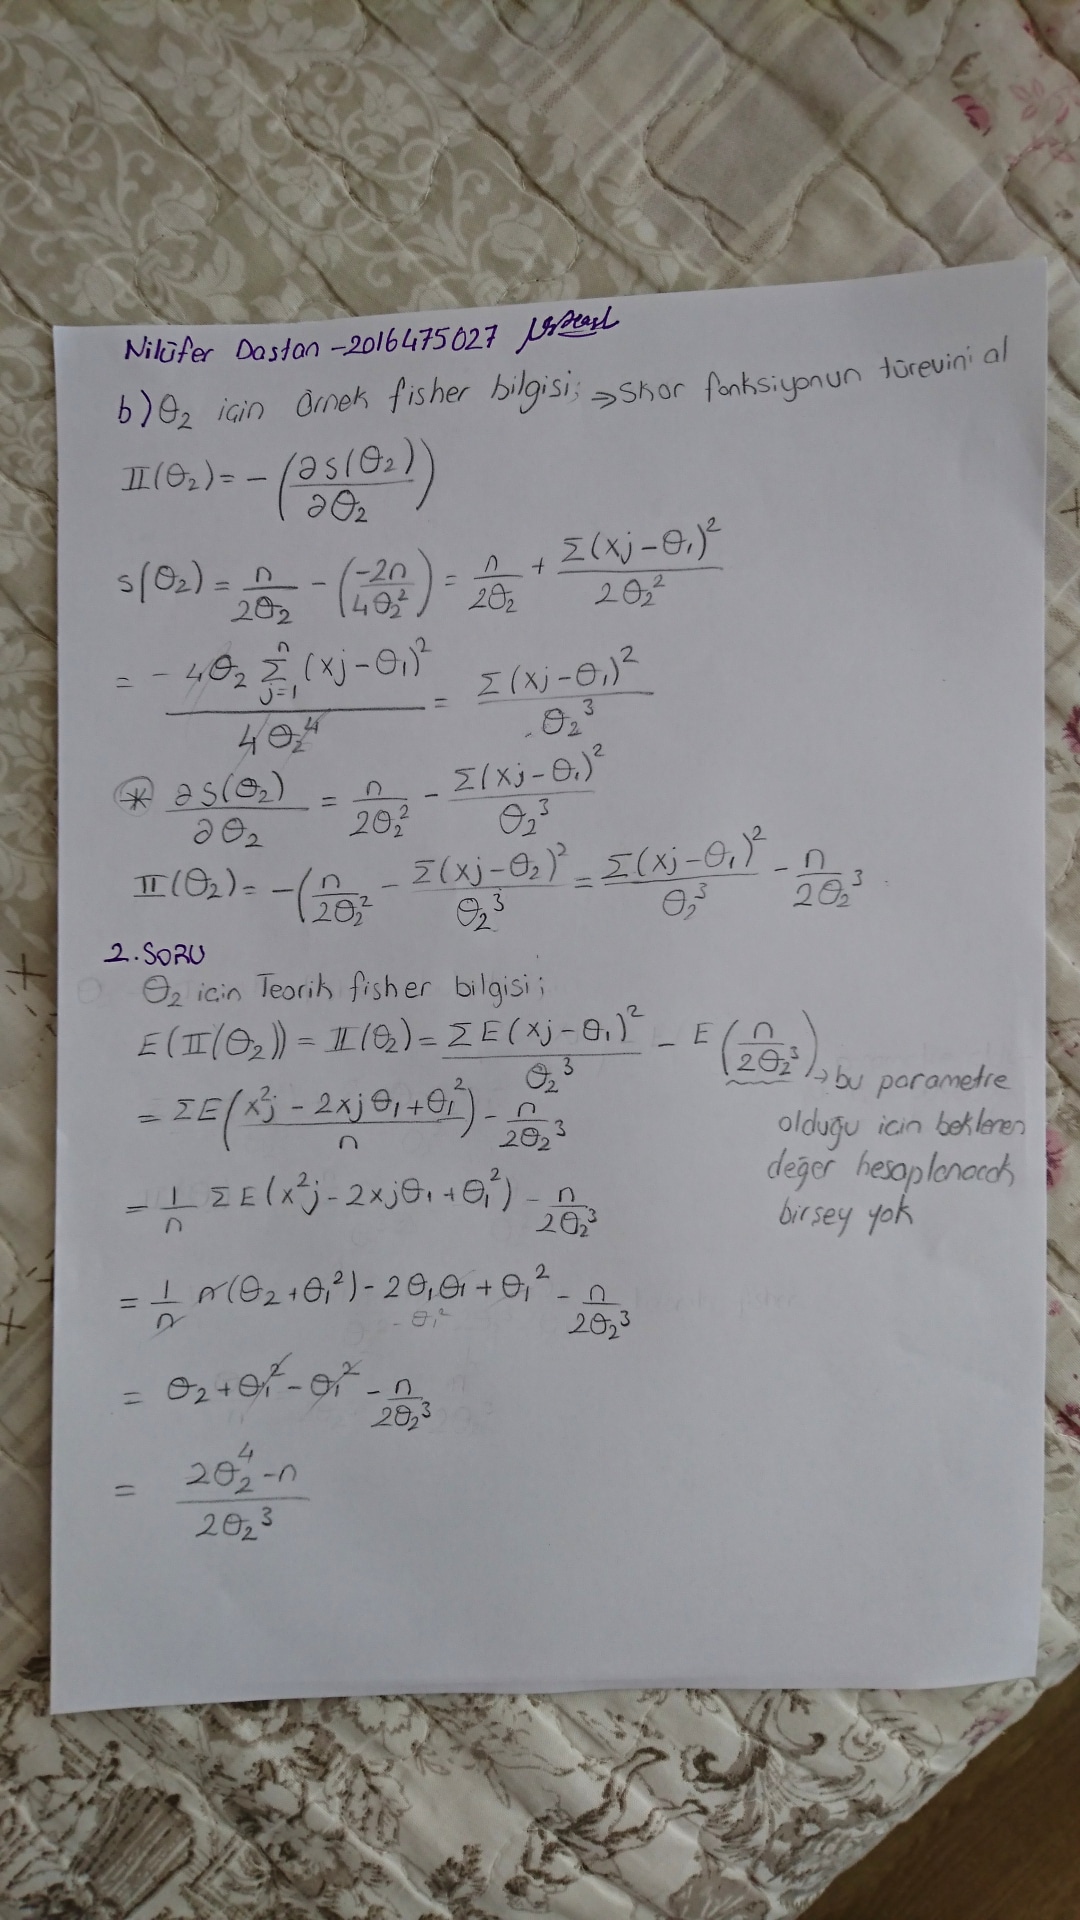 Nilüfer Dastan - 2016475027
b) θ₂ için Örnek fisher bilgisi; ⇒ Skor fonksiyonun türevini al
II(θ₂) = - (∂s(θ₂)/∂θ₂)
s(θ₂) = n/2θ₂ - (-2n/4θ₂²) = n/2θ₂ + Σ(xj-θ₁)²/2θ₂²
= - 4θ₂ Σⁿj=1 (xj-θ₁)²/4θ₂⁴ = Σ(xj-θ₁)²/θ₂³
* ∂s(θ₂)/∂θ₂ = n/2θ₂² - Σ(xj-θ₁)²/θ₂³
II(θ₂) = -(n/2θ₂² - Σ(xj-θ₂)²/θ₂³ = Σ(xj-θ₁)²/θ₂³ - n/2θ₂³
2. SORU
θ₂ icin Teorik fisher bilgisi;
E(II(θ₂)) = II(θ₂) = ΣE(xj-θ₁)²/θ₂³ - E(n/2θ₂³) → bu parametre
olduğu icin beklenen
değer hesaplanacak
birsey yok
= ΣE(x²j - 2xjθ₁+θ₁²/n) - n/2θ₂³
= 1/n ΣE(x²j - 2xjθ₁+θ₁²) - n/2θ₂³
= 1/n n(θ₂+θ₁²) - 2θ₁θ₁ + θ₁² - n/2θ₂³
- θ₁²
= θ₂+θ₁² - θ₁² - n/2θ₂³
= 2θ₂⁴-n/2θ₂³